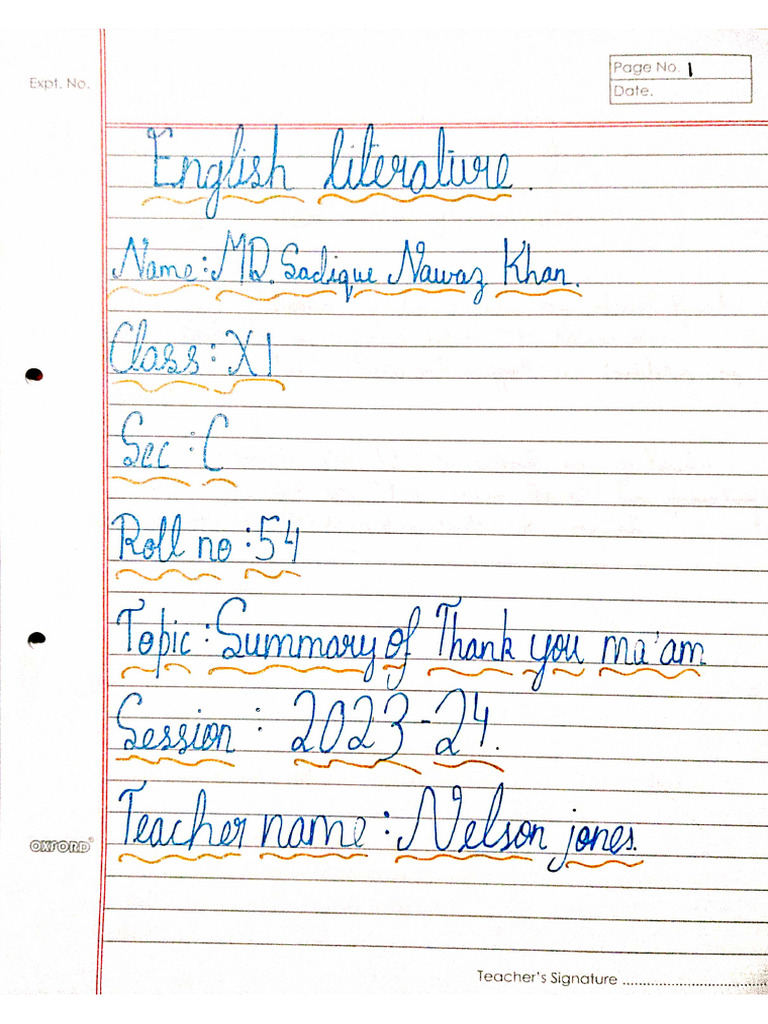 Expt. No.
Page No. 1
Date.
English literature.
Name: MD. Sadique Nawaz Khan.
Class: XI
Sec : C
Roll no : 54
Topic : Summary of Thank you ma'am
Session : 2023-24.
Teacher name : Nelson jones.
OXFORD
Teacher's Signature ..................................